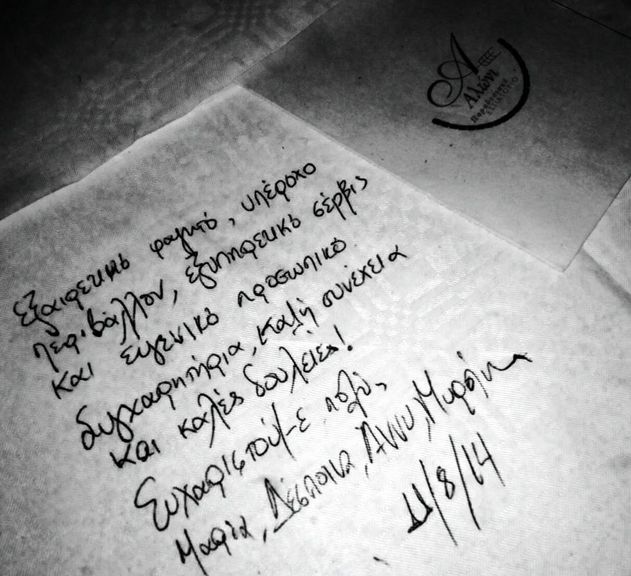 Α
Αλώνι
Παραδοσιακό
Εξαιρετικό φαγητό, υπέροχο
περιβάλλον, εξυπηρετικό σέρβις
και ευγενικό προσωπικό
Συγχαρητήρια, καλή συνέχεια
και καλές δουλειές!
Ευχαριστούμε πολύ,
Μαρία, Δέσποινα, Άννυ, Μυρσίνη
11/8/14